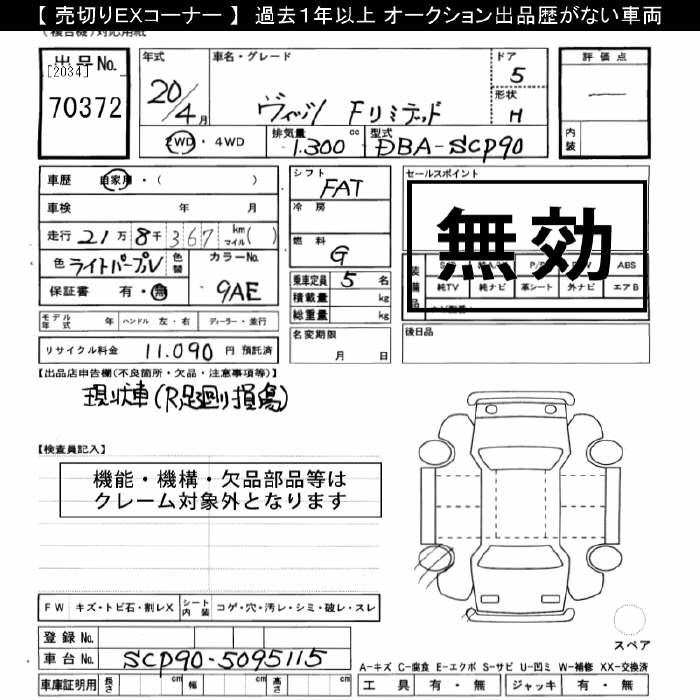 【 売切りEXコーナー 】 過去1年以上 オークション出品歴がない車両
(複合機)対応用紙
出品No.
[2034]
70372
年式
20/4月
車名・グレード
ヴィッツ Fリミテッド
ドア
5
形状
H
2WD・4WD
排気量
1.300 cc
型式
DBA-SCP90
評価点
—
内装
車歴 自家用・( )
車検 年 月
走行 21万 8千 367 km マイル( )
色 ライトパープル
色替
カラーNo.
9AE
保証書 有・無
モデル年式 年 ハンドル 左・右 ディーラー・並行
リサイクル料金 11.090 円 預託済
シフト
FAT
冷房
燃料
G
乗車定員 5 名
積載量 kg
総重量 kg
名変期限
月 日
セールスポイント
無効
装備品
ABS
純TV 純ナビ 革シート 外ナビ エアB
後日品
【出品店申告欄(不良箇所・欠品・注意事項等)】
現状車(R足廻り損傷)
【検査員記入】
機能・機構・欠品部品等は
クレーム対象外となります
FW キズ・トビ石・割レX シート内装 コゲ・穴・汚レ・シミ・破レ・スレ
登録No.
車台No. SCP90-5095115
車庫証明用 長さ cm 幅 cm 高さ cm
スペア
A-キズ C-腐食 E-エクボ S-サビ U-凹ミ W-補修 XX-交換済
工具 有・無 ジャッキ 有・無